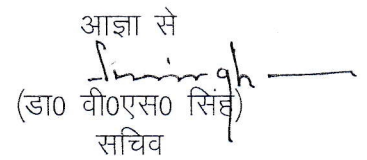 आज्ञा से
(डा0 वी0एस0 सिंह)
सचिव